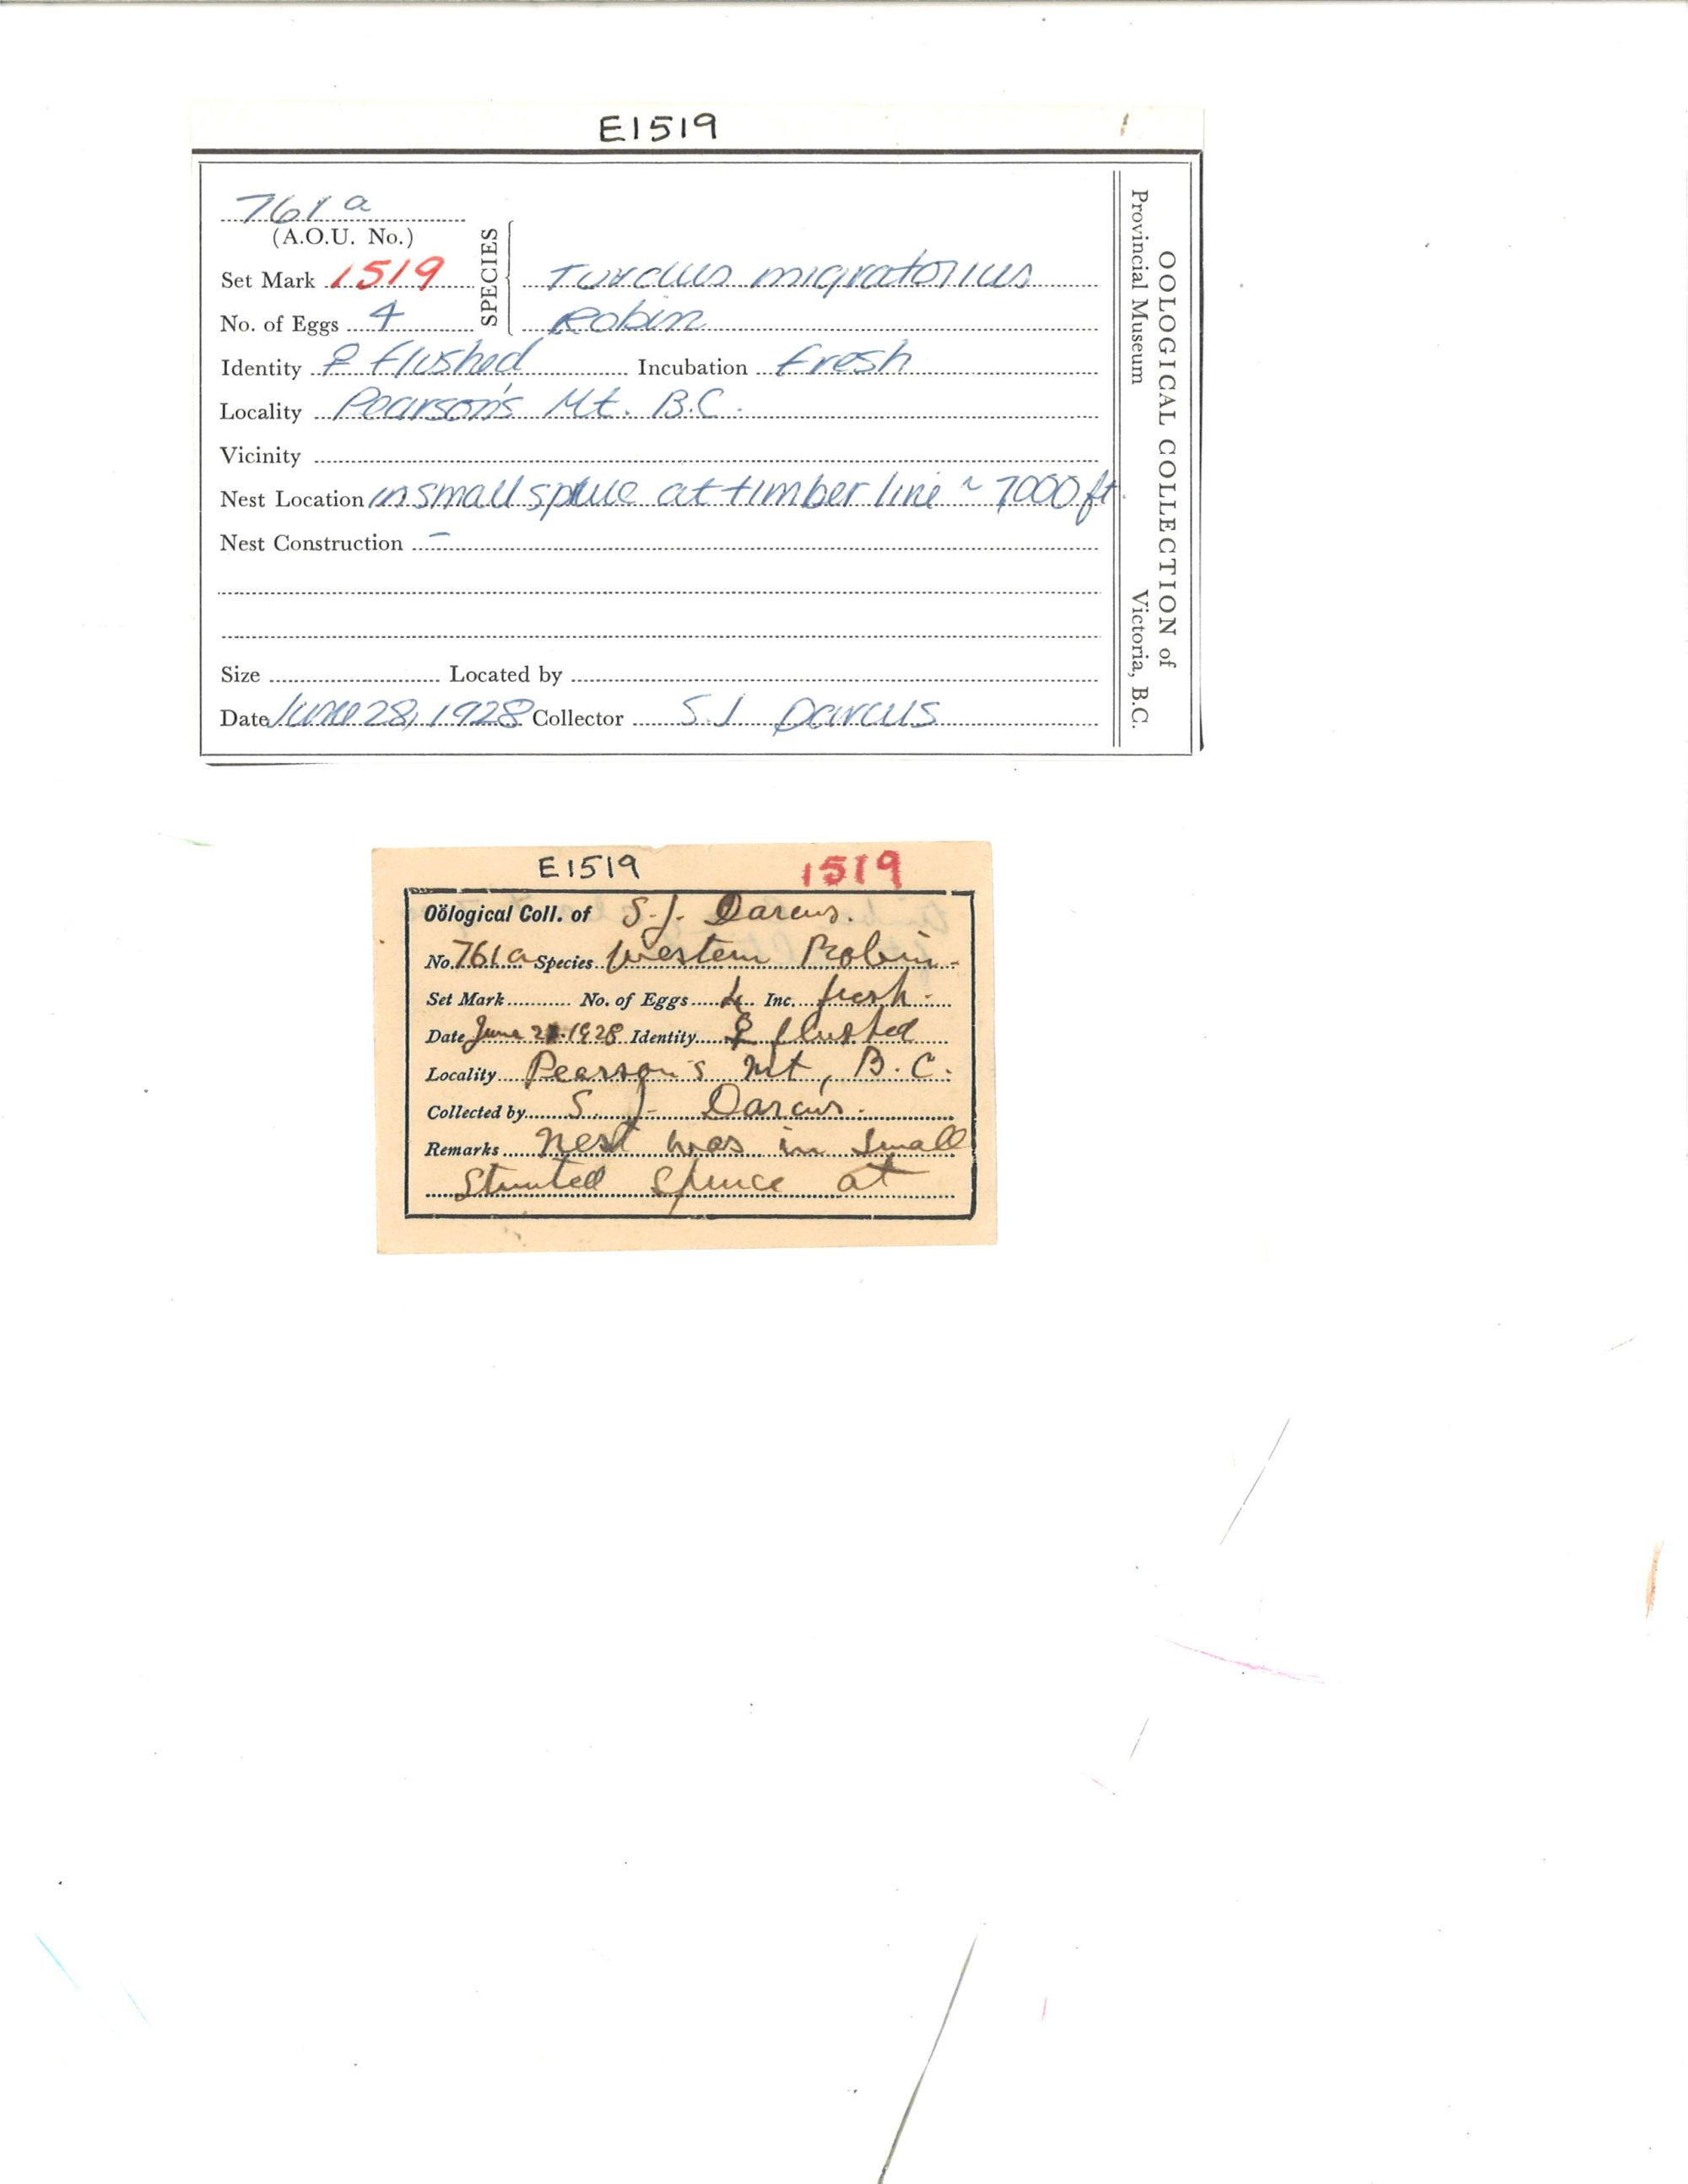 E1519
761a
(A.O.U. No.)
SPECIES
Set Mark 1519 Turdus migratorius
No. of Eggs 4 Robin
Identity ♀ flushed Incubation fresh
Locality Pearson's Mt. B.C.
Vicinity
Nest Location in small spruce at timber line ~ 7000 ft
Nest Construction -
Size Located by
Date June 28, 1928 Collector S.J Darcus
OOLOGICAL COLLECTION of
Provincial Museum Victoria, B.C.
E1519 1519
Oölogical Coll. of S.J. Darcus.
No. 761a Species Western Robin.
Set Mark No. of Eggs 4 Inc. fresh.
Date June .1928 Identity ♀ flushed
Locality Pearson's Mt, B.C.
Collected by S. J. Darcus.
Remarks Nest was in small
stunted spruce at